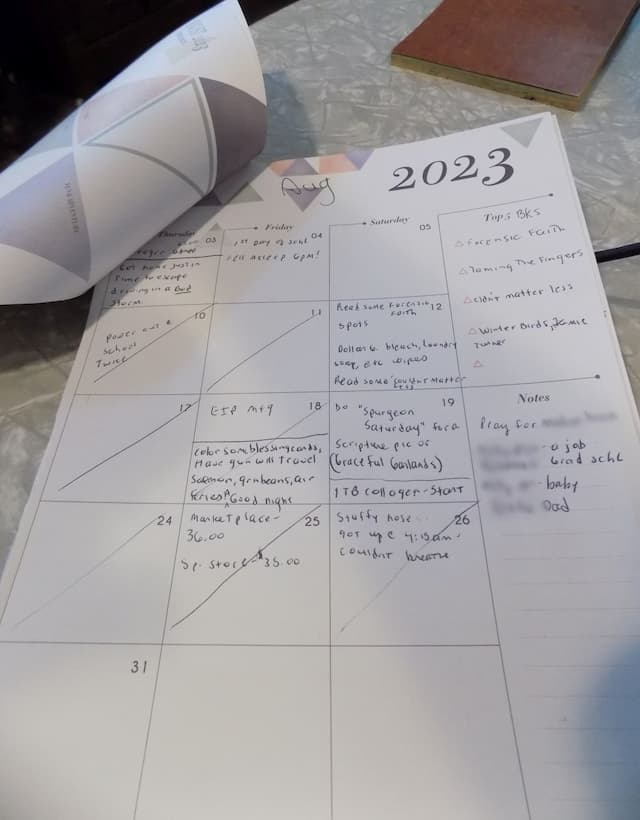 Aug
2023
Thursday
Friday
Saturday
Top 5 BKS
03
Got home just in
time to escape
driving in a Bad
Storm.
04
1st Day of schl
Fell asleep 6pm!
05
Forensic Faith
Taming The Fingers
Cldn't matter less
Winter Birds, Jamie
Turner
10
Power out @
school
Twice
11
12
Read some Forensic
Faith
spots
Dollar G. bleach, laundry
soap, etc wipes
Read some "couldn't Matter
Less
17
18
EIP Mtg
Color some blessing cards,
Have gun will Travel
Salmon, grn beans, air
fries Good night
19
Do "Spurgeon
Saturday" for a
Scripture pic or
(Graceful Garlands)
1 TB collagen - Start
24
25
Marketplace -
36.00
Sp. store - $35.00
26
Stuffy nose
got up @ 4:15am -
couldn't breathe
31
Notes
Pray for
- a job
Grad schl
- baby
Dad